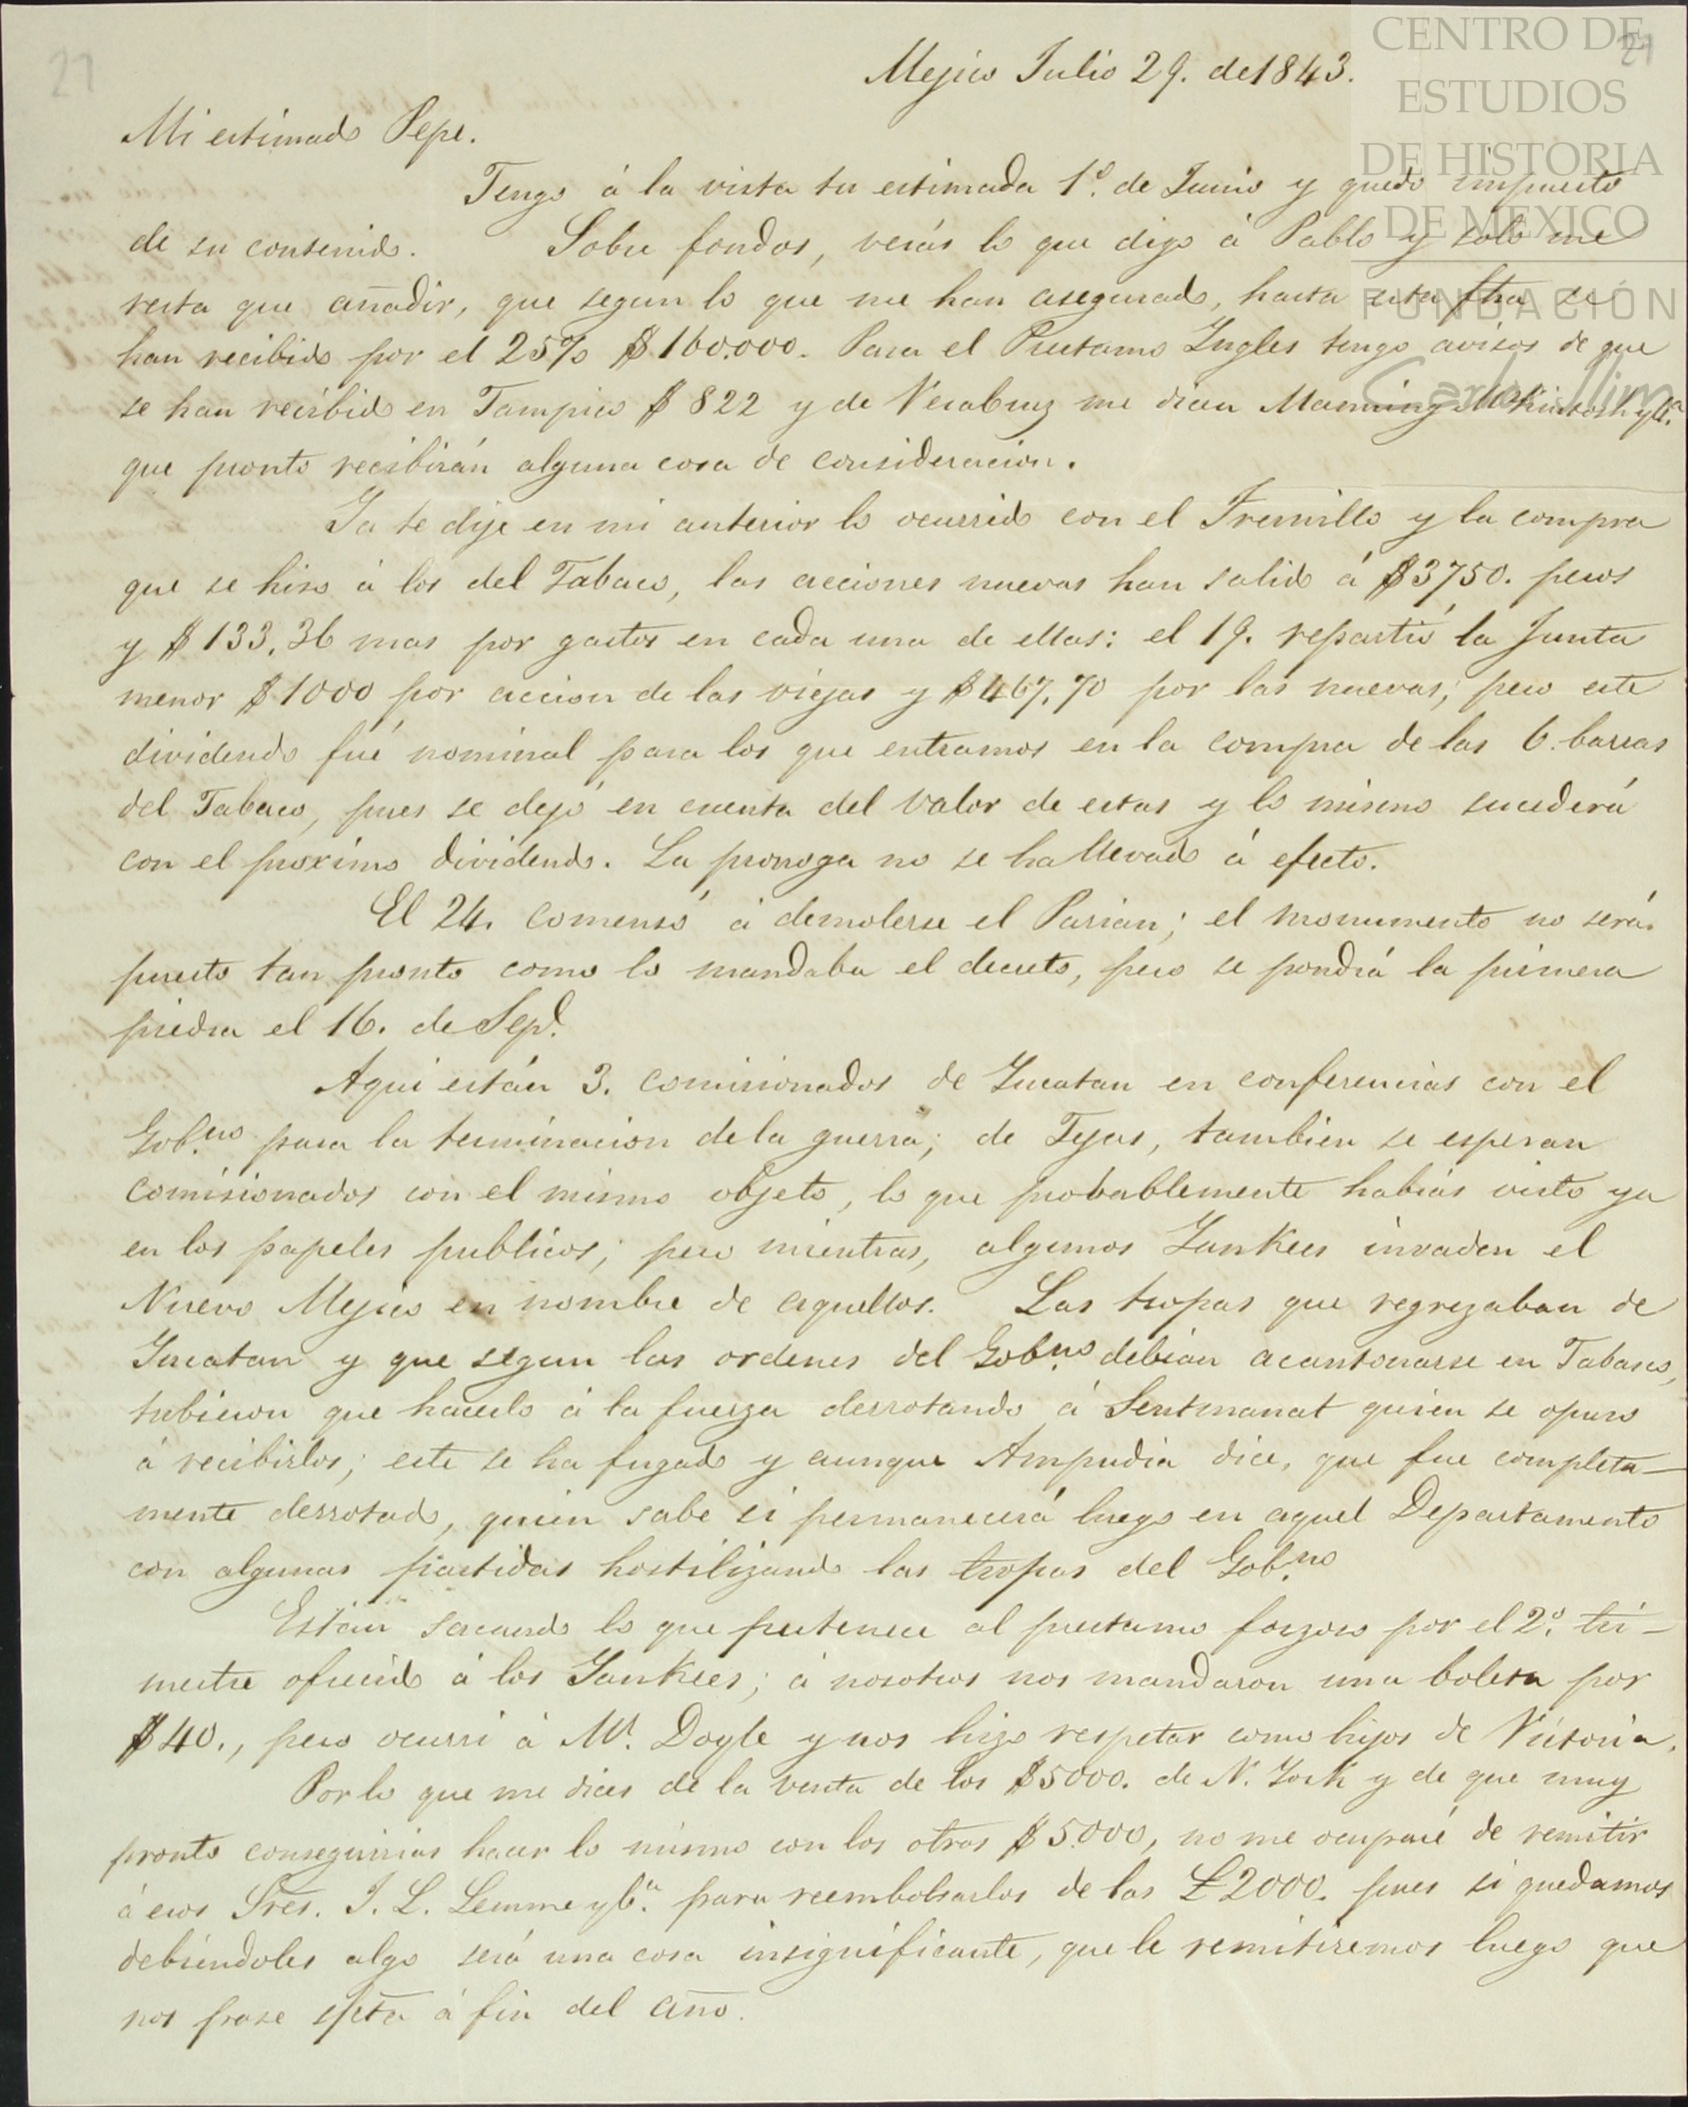 27
21
CENTRO DE
ESTUDIOS
DE HISTORIA
DE MEXICO
FUNDACIÓN
Carlos Slim
Mejico Julio 29. de 1843.
Mi estimado Pepe.
Tengo á la vista tu estimada 1º. de Junio y quedo impuesto
de su contenido. Sobre fondos, verás lo que digo á Pablo y solo me
resta que añadir, que segun lo que me han asegurado, hasta esta fha se
han recibido por el 25% $160.000. Para el Prestamo Ingles tengo avisos de que
se han recibido en Tampico $822 y de Veracruz me dicen Manning Mackintosh y Cª.
que pronto recibirán alguna cosa de consideracion.
Ya te dije en mi anterior lo ocurrido con el Fresnillo y la compra
que se hiso á los del Tabaco, las acciones nuevas han salido á $3750. pesos
y $133,36 mas por gastos en cada una de ellas: el 19. repartió la Junta
menor $1000 por accion de las viejas y $467,70 por las nuevas; pero este
dividendo fué nominal para los que entramos en la compra de las 6. barras
del Tabaco, pues se dejó en cuenta del valor de estas y lo mismo sucederá
con el proximo dividendo. La proroga no se ha llevado á efecto.
El 24. comensó á demolerse el Parian; el monumento no será
puesto tan pronto como lo mandaba el decreto, pero se pondrá la primera
piedra el 16. de Sepe.
Aqui están 3. comisionados de Yucatan en conferencias con el
Gob.no para la terminacion de la guerra; de Tejas, tambien se esperan
comisionados con el mismo objeto, lo que probablemente habrás visto ya
en los papeles publicos; pero mientras, algunos Yankees invaden el
Nuevo Mejico en nombre de aquellos. Las tropas que regrezaban de
Yucatan y que segun las ordenes del Gob.no debian acantonarse en Tabasco,
tubieron que hacerlo á la fuerza derrotando á Sentmanat quien se opuso
á recibirlos; este se ha fugado y aunque Ampudia dice, que fue completa-
mente derrotado, quien sabe si permanecerá luego en aquel Departamento
con algunas partidas hostilizando las tropas del Gob.no
Están sacando lo que pertenece al prestamo forzoso por el 2º. tri-
mestre ofrecido á los Yankees; á nosotros nos mandaron una boleta por
$40., pero ocurri á Mr. Doyle y nos hizo respetar como hijos de Victoria.
Por lo que me dices de la venta de los $5000. de N. York y de que muy
pronto conseguirias hacer lo mismo con los otros $5.000, no me ocuparé de remitir
á esos Sres. I. L. Lemme y Cª. para reembolsarlos de las £2000. pues si quedamos
debiéndoles algo será una cosa insignificante, que le remitiremos luego que
nos pase cueta á fin del año.